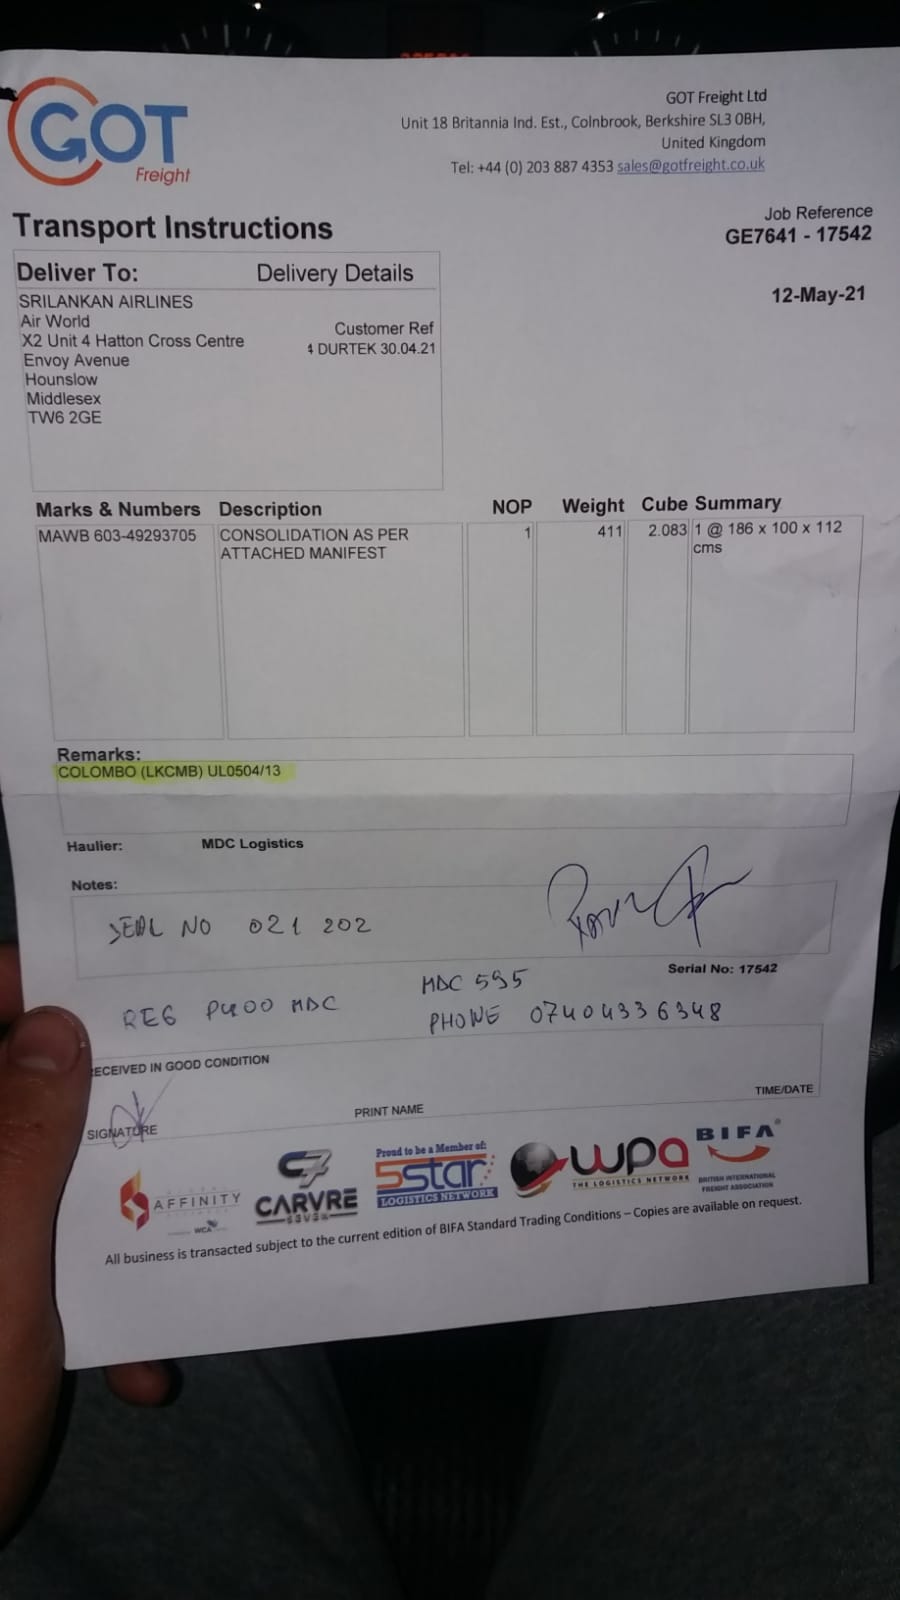 GOT
Freight
GOT Freight Ltd
Unit 18 Britannia Ind. Est., Colnbrook, Berkshire SL3 0BH,
United Kingdom
Tel: +44 (0) 203 887 4353 sales@gotfreight.co.uk
Transport Instructions
Job Reference
GE7641 - 17542
12-May-21
Deliver To: Delivery Details
SRILANKAN AIRLINES
Air World
X2 Unit 4 Hatton Cross Centre
Envoy Avenue
Hounslow
Middlesex
TW6 2GE
Customer Ref
DURTEK 30.04.21
Marks & Numbers Description NOP Weight Cube Summary
MAWB 603-49293705 CONSOLIDATION AS PER 1 411 2.083 1 @ 186 x 100 x 112
ATTACHED MANIFEST cms
Remarks:
COLOMBO (LKCMB) UL0504/13
Haulier: MDC Logistics
Notes:
SEAL NO 021 202
Serial No: 17542
REG P400 MDC MDC 595
PHONE 07404336348
RECEIVED IN GOOD CONDITION
SIGNATURE PRINT NAME TIME/DATE
AFFINITY
WCA
CARVRE
SEVEN
Proud to be a Member of:
5star
LOGISTICS NETWORK
wpa
THE LOGISTICS NETWORK
BIFA
BRITISH INTERNATIONAL
FREIGHT ASSOCIATION
All business is transacted subject to the current edition of BIFA Standard Trading Conditions – Copies are available on request.